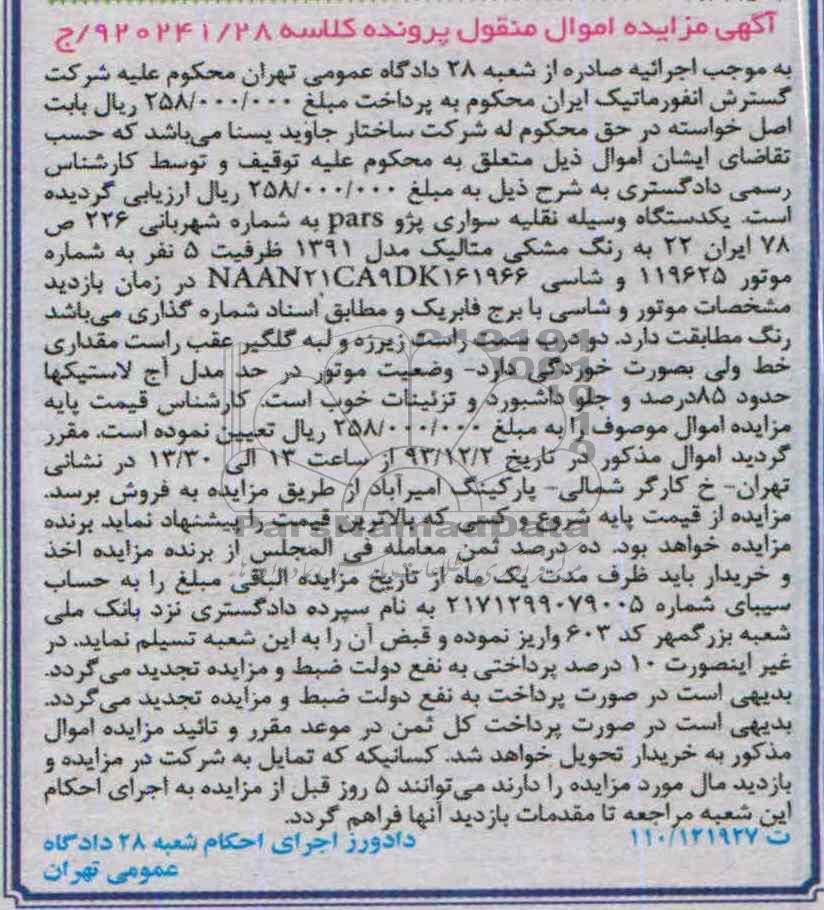 آگهی مزایده اموال منقول پرونده کلاسه ۹۲۰۲۴۱/۲۸/ج
به موجب اجرائیه صادره از شعبه ۲۸ دادگاه عمومی تهران محکوم علیه شرکت
گسترش انفورماتیک ایران محکوم به پرداخت مبلغ ۲۵۸/۰۰۰/۰۰۰ ریال بابت
اصل خواسته در حق محکوم له شرکت ساختار جاوید یسنا می‌باشد که حسب
تقاضای ایشان اموال ذیل متعلق به محکوم علیه توقیف و توسط کارشناس
رسمی دادگستری به شرح ذیل به مبلغ ۲۵۸/۰۰۰/۰۰۰ ریال ارزیابی گردیده
است. یکدستگاه وسیله نقلیه سواری پژو pars به شماره شهربانی ۲۲۶ ص
۷۸ ایران ۲۲ به رنگ مشکی متالیک مدل ۱۳۹۱ ظرفیت ۵ نفر به شماره
موتور ۱۱۹۶۲۵ و شاسی NAAN۲۱CA۹DK۱۶۱۹۶۶ در زمان بازدید
مشخصات موتور و شاسی با برج فابریک و مطابق اسناد شماره گذاری می‌باشد
رنگ مطابقت دارد. دو درب سمت راست زیرزه و لبه گلگیر عقب راست مقداری
خط ولی بصورت خوردگی دارد- وضعیت موتور در حد مدل آج لاستیکها
حدود ۸۵درصد و جلو داشبورد و تزئینات خوب است. کارشناس قیمت پایه
مزایده اموال موصوف را به مبلغ ۲۵۸/۰۰۰/۰۰۰ ریال تعیین نموده است. مقرر
گردید اموال مذکور در تاریخ ۹۳/۱۲/۲ از ساعت ۱۳ الی ۱۳/۳۰ در نشانی
تهران- خ کارگر شمالی- پارکینگ امیرآباد از طریق مزایده به فروش برسد.
مزایده از قیمت پایه شروع و کسی که بالاترین قیمت را پیشنهاد نماید برنده
مزایده خواهد بود. ده درصد ثمن معامله فی المجلس از برنده مزایده اخذ
و خریدار باید ظرف مدت یک ماه از تاریخ مزایده الباقی مبلغ را به حساب
سیبای شماره ۲۱۷۱۲۹۹۰۷۹۰۰۵ به نام سپرده دادگستری نزد بانک ملی
شعبه بزرگمهر کد ۶۰۳ واریز نموده و قبض آن را به این شعبه تسیلم نماید. در
غیر اینصورت ۱۰ درصد پرداختی به نفع دولت ضبط و مزایده تجدید می‌گردد.
بدیهی است در صورت پرداخت به نفع دولت ضبط و مزایده تجدید می‌گردد.
بدیهی است در صورت پرداخت کل ثمن در موعد مقرر و تائید مزایده اموال
مذکور به خریدار تحویل خواهد شد. کسانیکه که تمایل به شرکت در مزایده و
بازدید مال مورد مزایده را دارند می‌توانند ۵ روز قبل از مزایده به اجرای احکام
این شعبه مراجعه تا مقدمات بازدید آنها فراهم گردد.
ت ۱۱۰/۱۲۱۹۲۷ دادورز اجرای احکام شعبه ۲۸ دادگاه
عمومی تهران
ParsNamadData